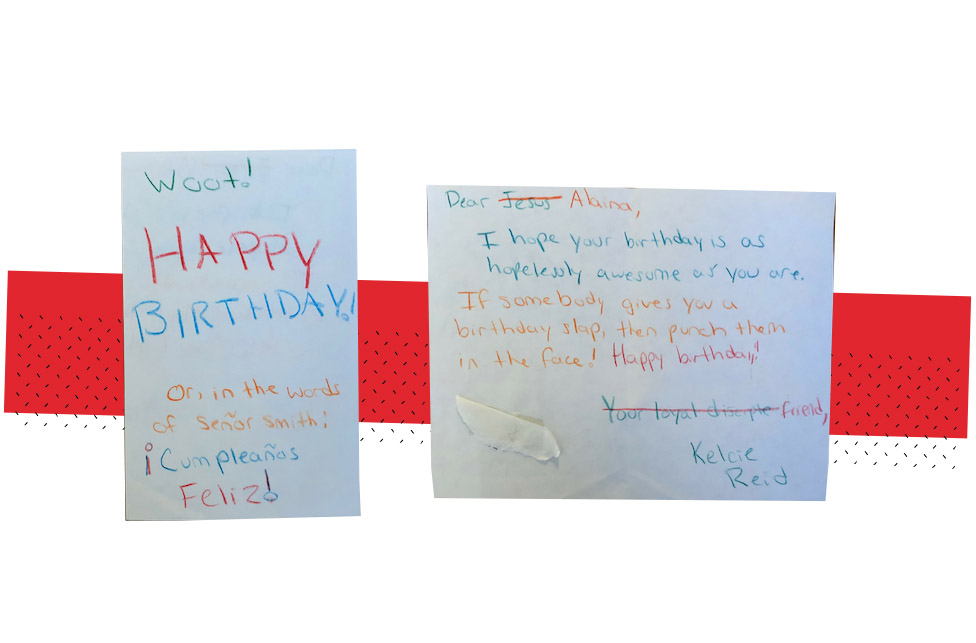 Woot!
HAPPY
BIRTHDAY!
Or, in the words
of señor smith:
¡Cumpleaños
Feliz!
Dear Jesus Alaina,
I hope your birthday is as
hopelessly awesome as you are.
If somebody gives you a
birthday slap, then punch them
in the face! Happy birthday!
Your loyal disciple friend,
Kelcie
Reid